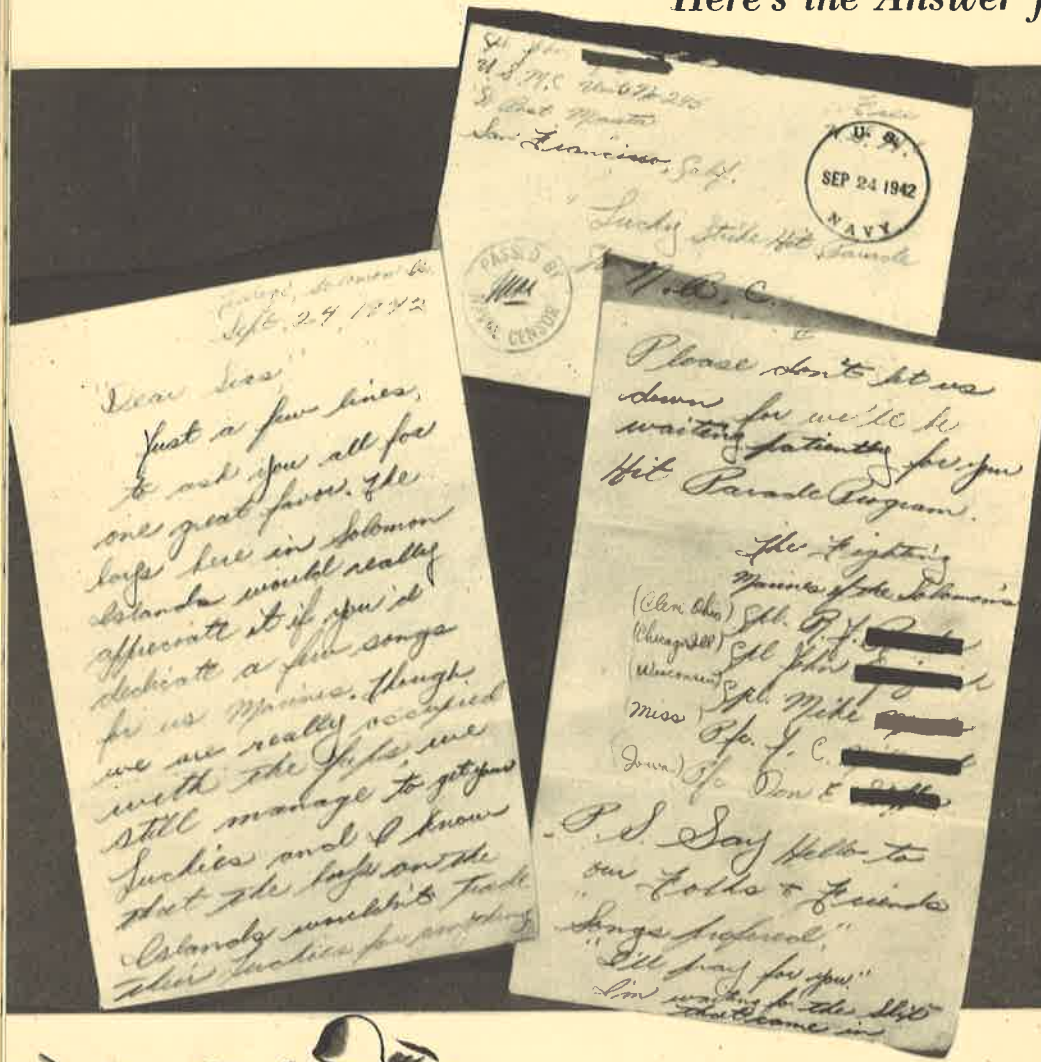 Here's the Answer f
Cpl. John
U.S.M.C. Unit No 245
% Post Master
San Francisco, Calif.
Free
U.S.
SEP 24 1942
NAVY
"Lucky Strike Hit Parade
% N.B.C.
PASSED BY
NAVAL CENSOR
Solomon Is.
Sept. 24, 1942
"Dear Sirs"
Just a few lines,
to ask you all for
one great favor. The
boys here in Solomon
Islands would really
appreciate it if you'd
dedicate a few songs
for us Marines. Though
we are really occupied
with the Japs, we
still manage to get your
Luckies and I know
that the boys on the
Islands wouldn't trade
their Luckies for anything
II
Please don't let us
down for we'll be
waiting patiently for you
Hit Parade Program.
The Fighting
Marines of the Solomon's
(Clev. Ohio) Cpl. P. J.
(Chicago Ill) Cpl John
(Wisconsin) Cpl. Mike
(Miss) Pfc. J. C.
(Iowa) Pfc Don E
P.S. Say Hello to
our Folks & Friends
"Songs prefered"
"I'll pray for you"
I'm waiting for the Ship
that came in